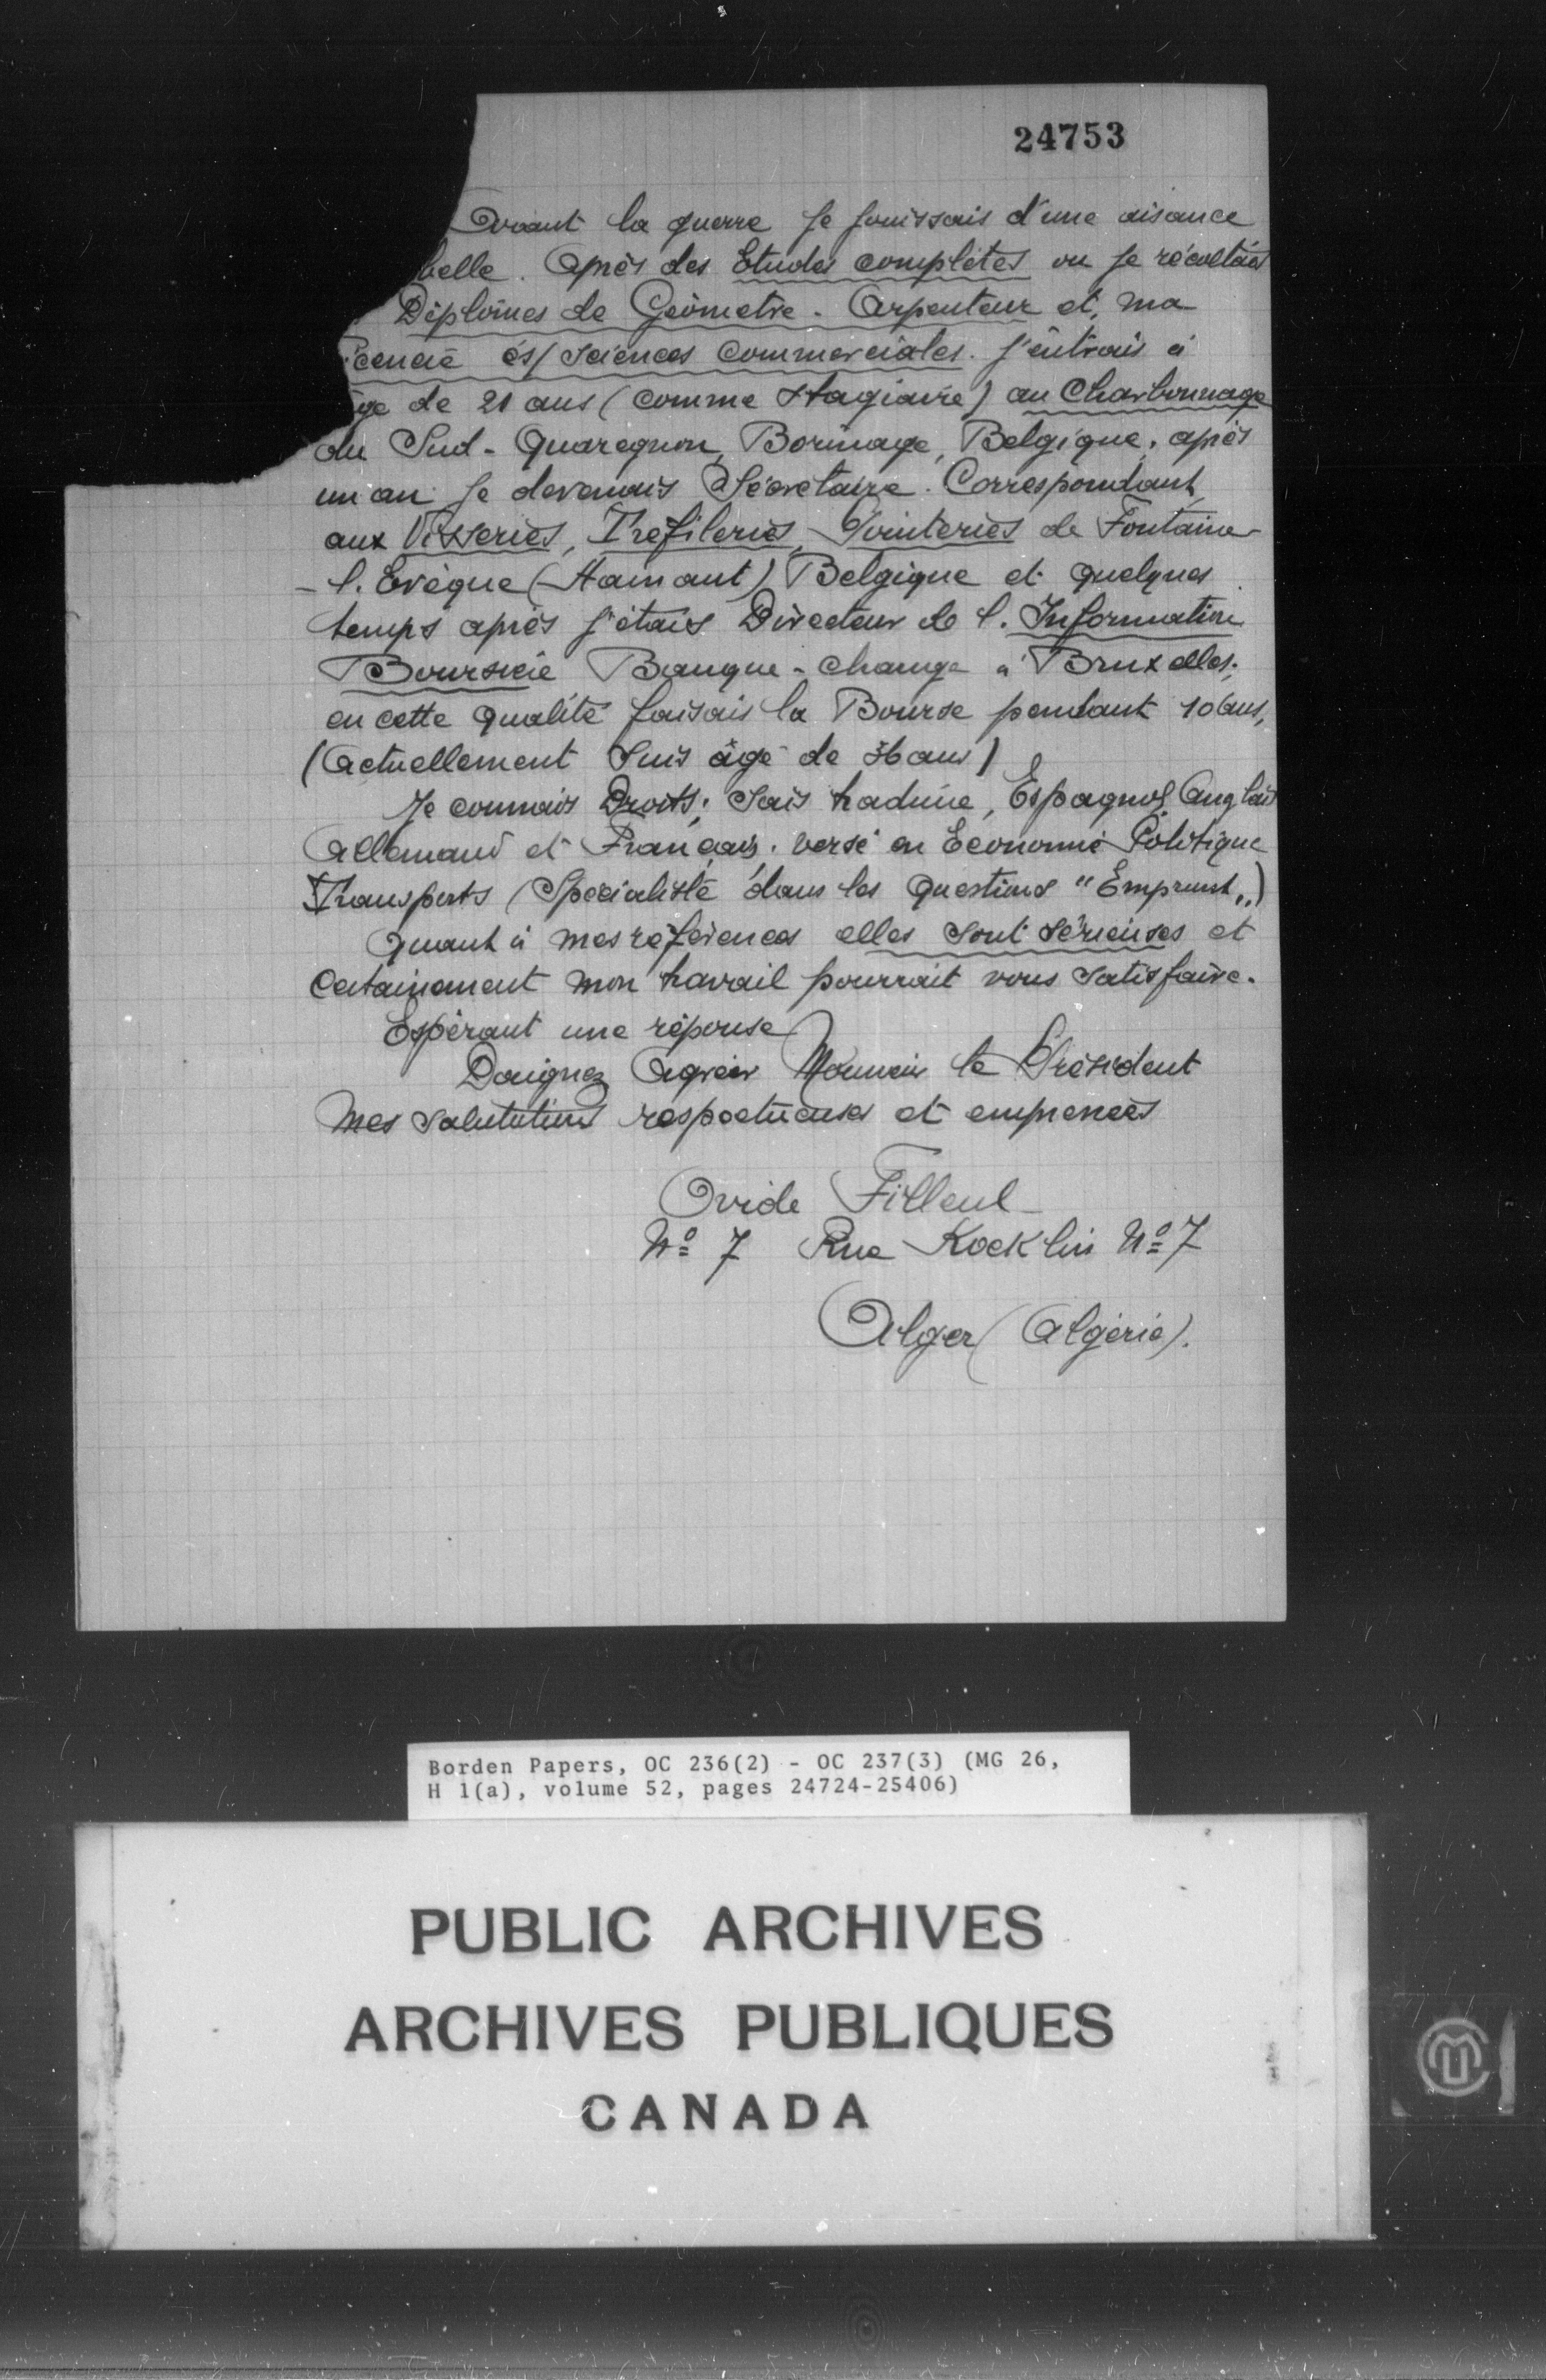 24753
Avant la guerre je jouissais d'une aisance
belle. Après des Etudes complètes ou je récoltais
Diplômes de Géomètre-Arpenteur et, ma
icencié ès/Sciences Commerciales. J'entrais à
âge de 21 ans (comme Stagiaire) au Charbonnage
du Sud-Quaregnon, Borinage, Belgique, après
un an je devenais Sécretaire-Correspondant
aux Visseries, Trefileries, Pointeries de Fontaine-
-l'Evèque (Hainaut) Belgique et quelques
temps après j'étais Directeur de l'Information
Boursière Banque-change à Bruxelles;
en cette qualité faisais la Bourse pendant 10 ans,
(Actuellement suis âgé de 36 ans)
Je connais Droits; Sais traduire, Espagnol, Anglais
Allemand et Français. versé en Economie Politique
Transports (Spécialiste dans les Questions "Emprunt")
Quant à mes références elles sont sérieuses et
Certainement mon travail pourrait vous satisfaire.
Espérant une réponse
Daignez Agréer Monsieur le Président
mes salutations respectueuses et empressées
Ovide Filleul
No 7 Rue Kocklin No 7
Alger (Algérie).
Borden Papers, OC 236(2) - OC 237(3) (MG 26,
H 1(a), volume 52, pages 24724-25406)
PUBLIC ARCHIVES
ARCHIVES PUBLIQUES
CANADA